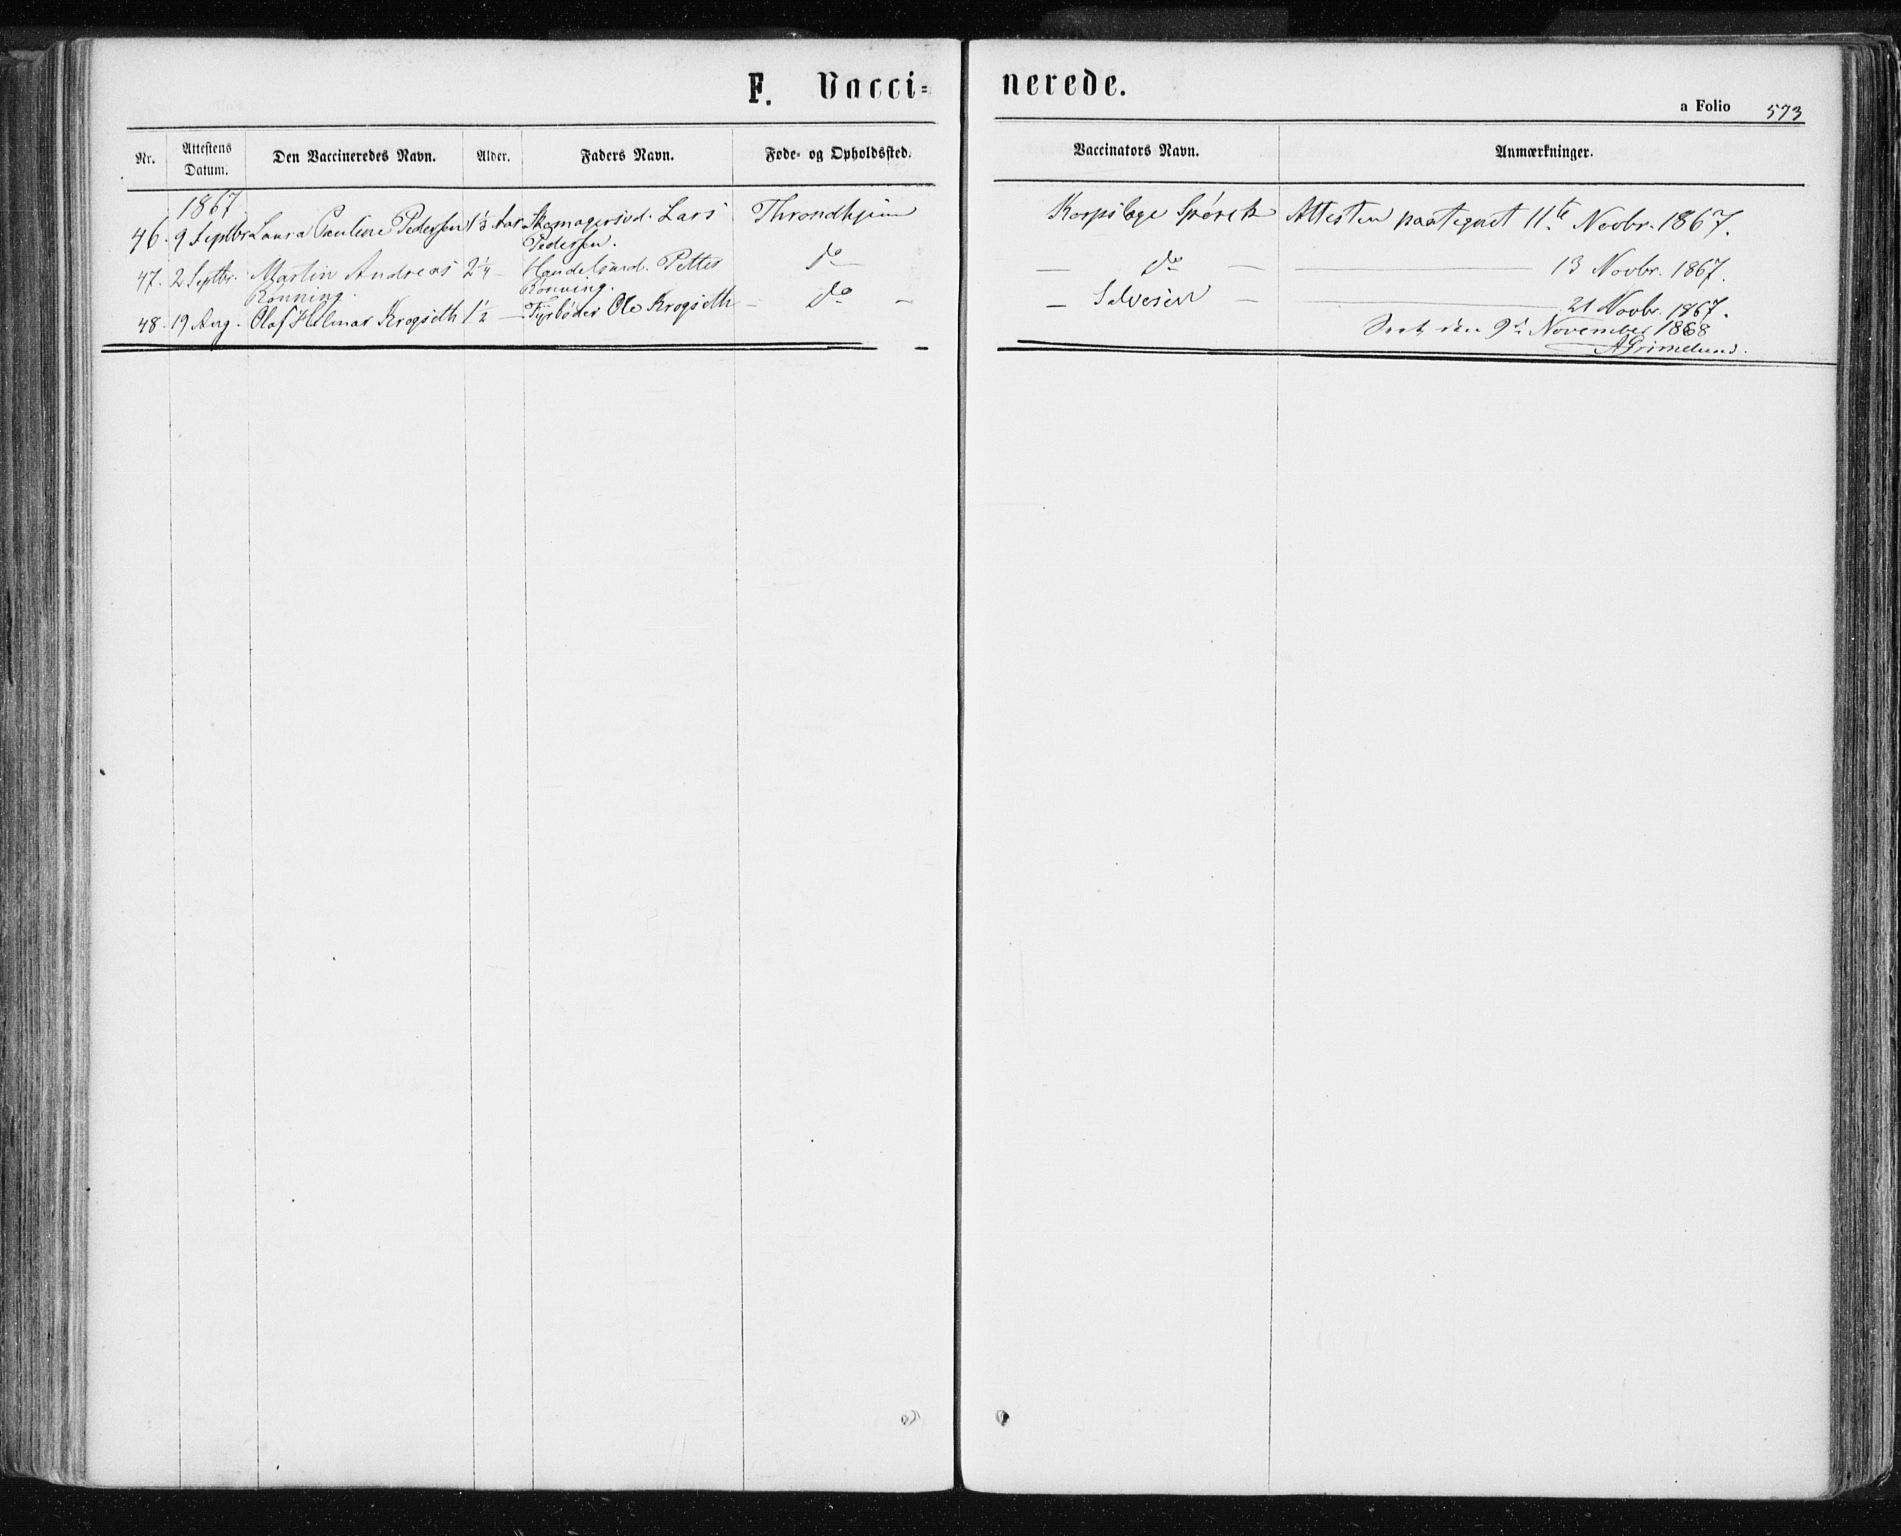 F. Vacci=
nerede.
a Folio 573
Nr. Attestens Datum. Den Vaccineredes Navn. Alder. Faders Navn. Føde- og Opholdssted. Vaccinators Navn. Anmærkninger.
1867
46. 9 Septbr Laura Pauline Pedersen 1⅓ Aar Skomagersvd. Lars Throndhjem Korpslæge Spørck Attesten paategnet 11te Novbr. 1867.
Pedersen.
47. 2 Septbr. Martin Andreas 2¼ — Handelsmd. Petter do — do — — 13 Novbr. 1867.
Rønning. Rønning.
48. 19 Aug. Olaf Hilmar Krogseth 1½ — Fyrbøder Ole Krogseth — do — — Selvesen — — 21 Novbr. 1867.
Seet den 9de November 1868
AGrimelund.